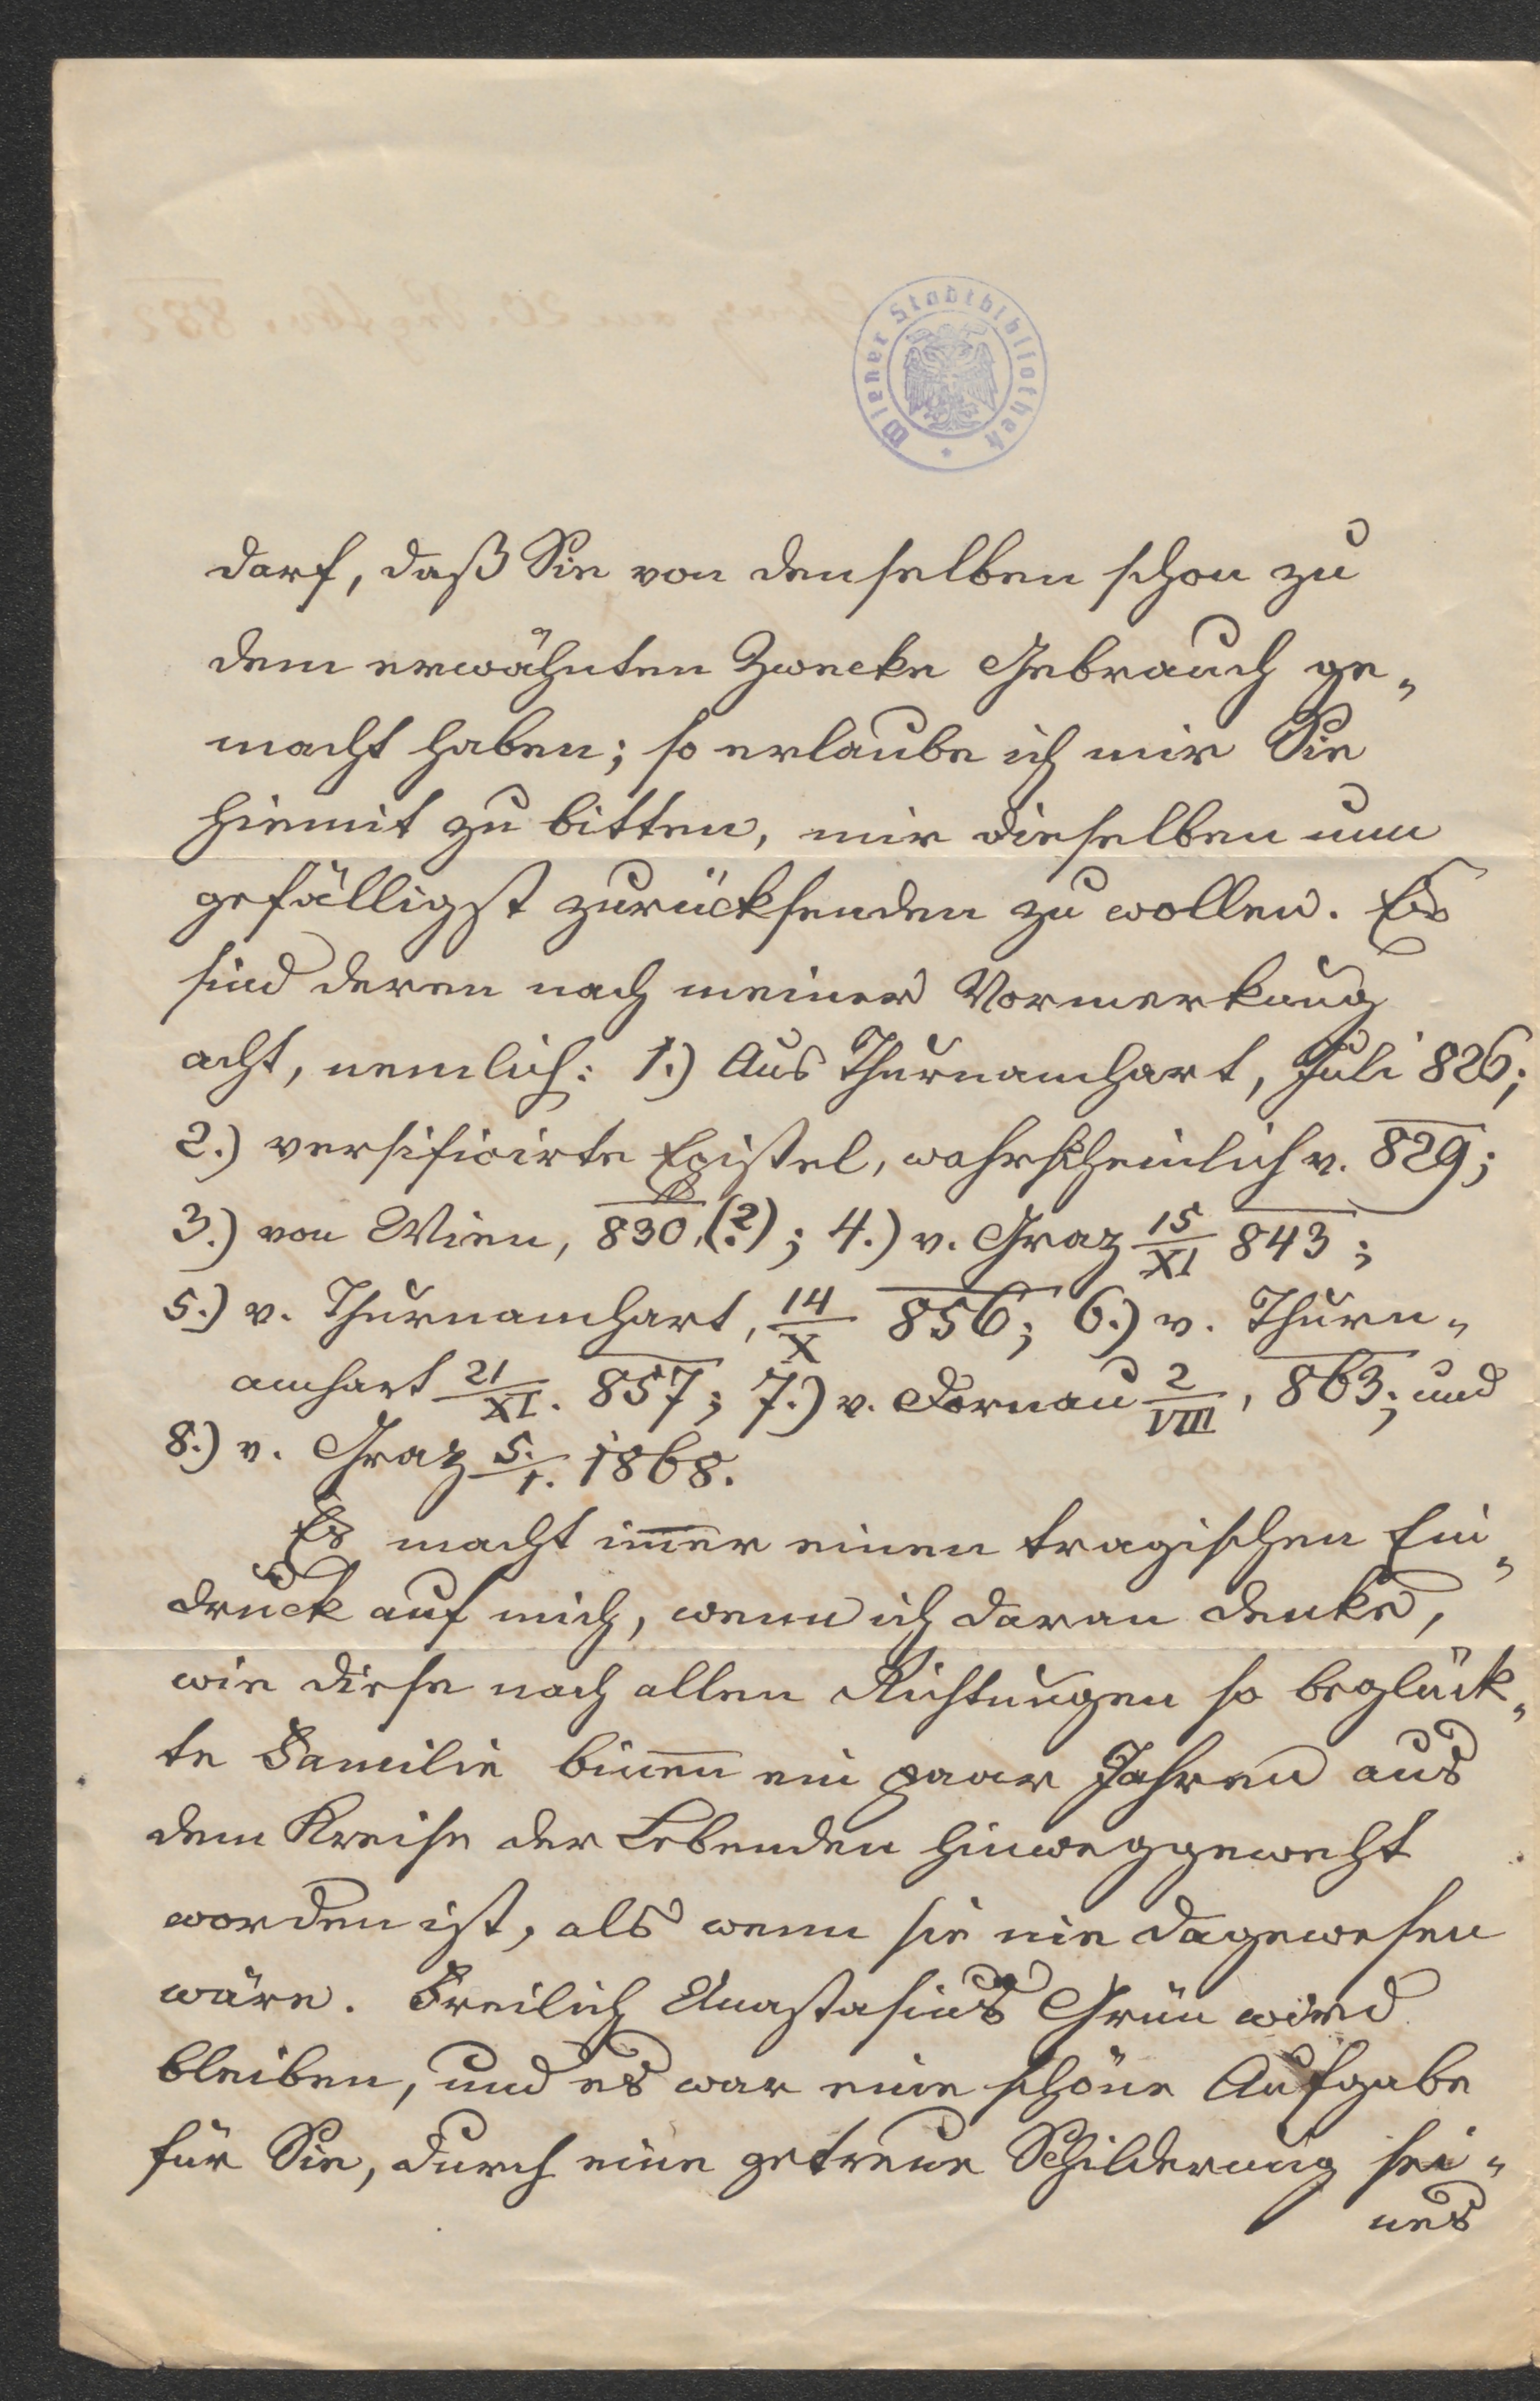 Wiener Stadtbibliothek *
darf, daß Sie von denselben schon zu
dem erwähnten Zwecke Gebrauch ge„
macht haben; so erlaube ich mir Sie
hiemit zu bitten, mir dieselben nun
gefälligst zurücksenden zu wollen. Es
sind deren nach meiner Vormerkung
acht, nemlich: 1.) Aus Thurnamhart, Juli 826;
2.) versificirte Epistel, wahrscheinlich v. 829;
3.) von Wien, 830, (?); 4.) v. Graz 15/XI 843;
5.) v. Thurnamhart, 14/X 856; 6.) v. Thurn„
amhart 21/XI. 857; 7.) v. Dornau 2/VIII, 863; und
8.) v. Graz 5./1. 1868.
Es macht im̅er einen tragischen Ein„
druck auf mich, wenn ich daran denke,
wie diese nach allen Richtungen so beglück„
te Familie binen̅ ein paar Jahren aus
dem Kreise der Lebenden hinweggeweht
worden ist, als wenn sie nie dagewesen
wäre. Freilich Anastasius Grün wird
bleiben, und es war eine schöne Aufgabe
für Sie, durch eine getreue Schilderung sei„
nes